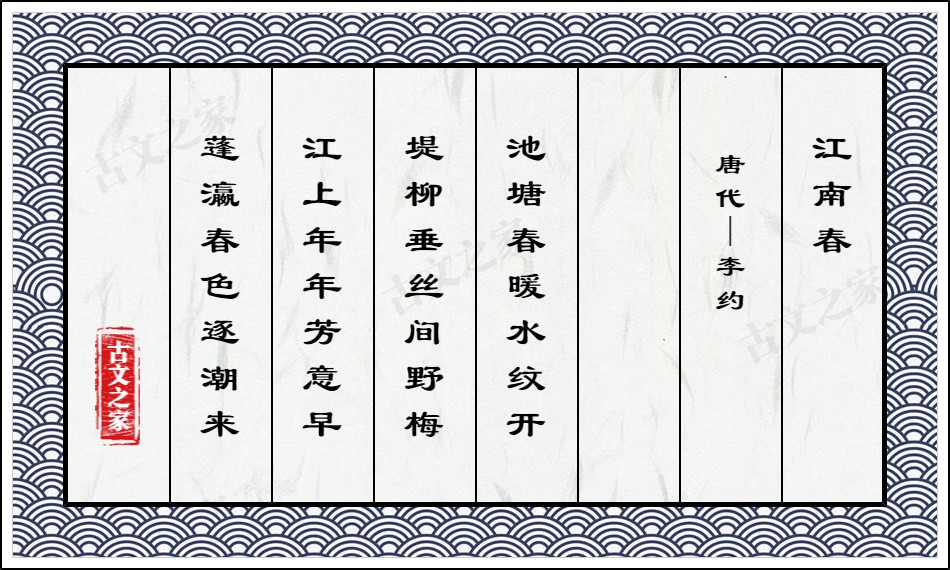 江南春
唐代—李约
池塘春暖水纹开
堤柳垂丝间野梅
江上年年芳意早
蓬瀛春色逐潮来
古文之家
古文之家
古文之家
古文之家